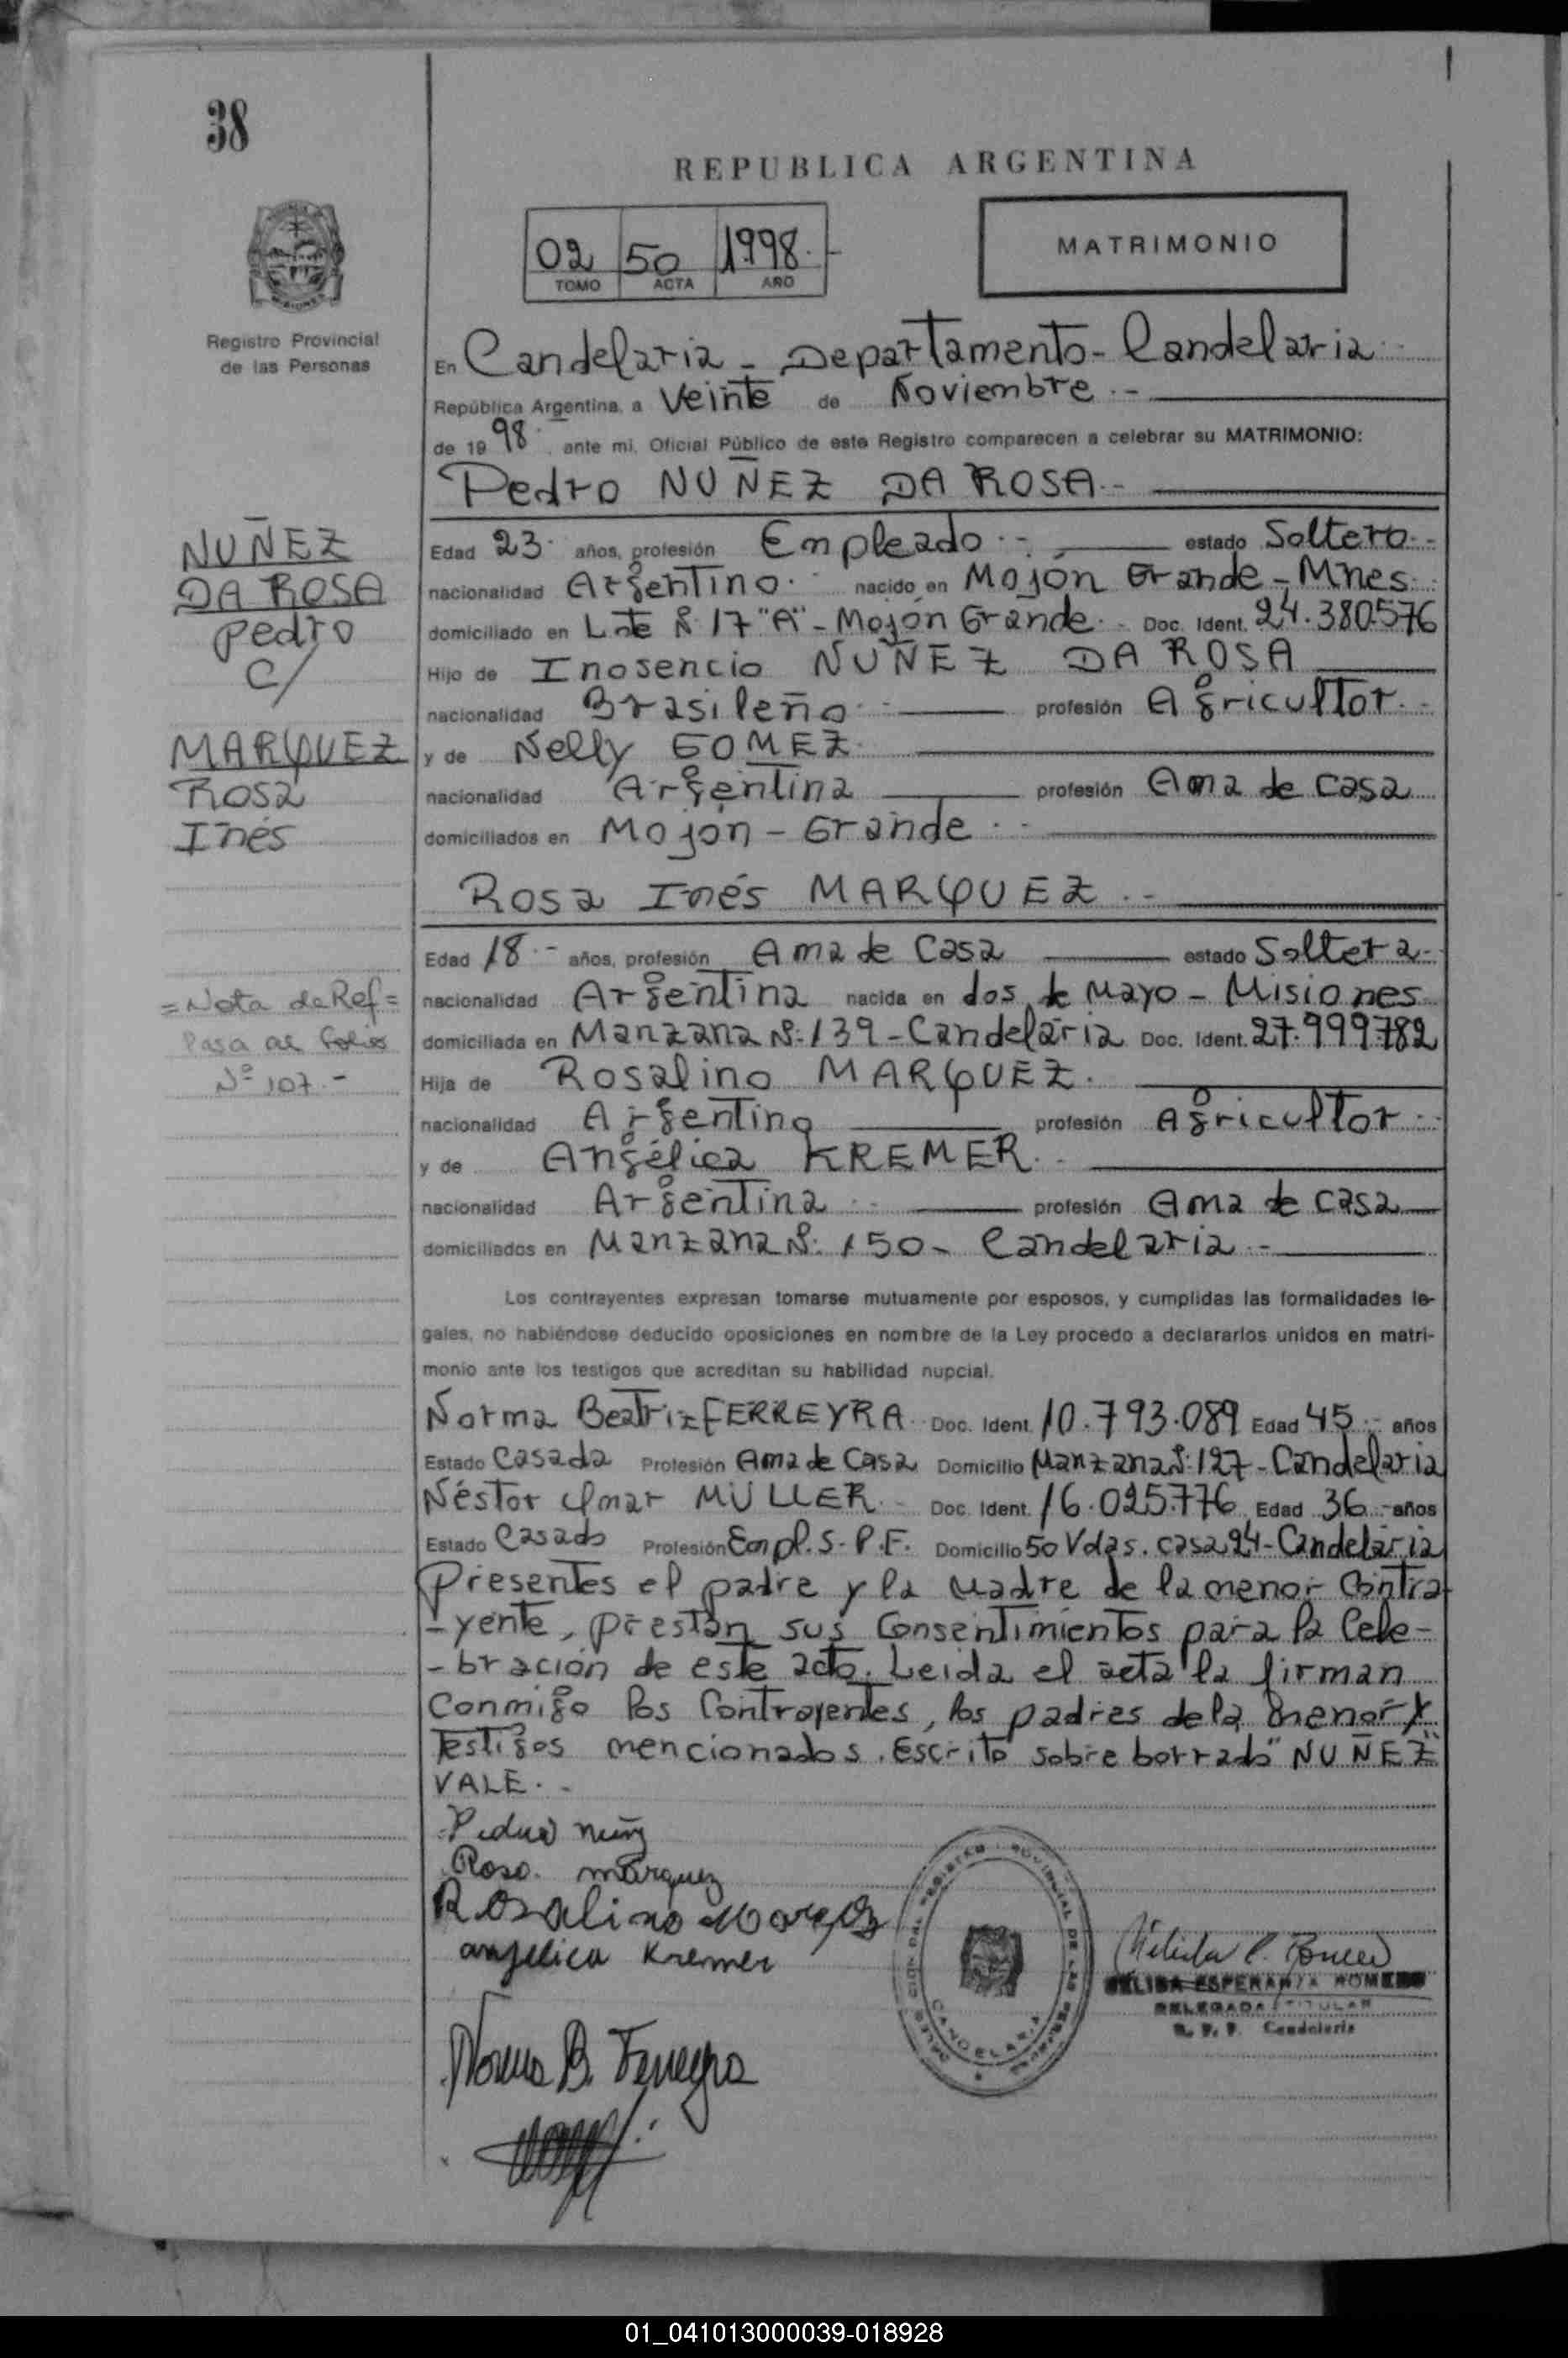 38
REPUBLICA ARGENTINA
02 50 1998.-
TOMO ACTA AÑO
MATRIMONIO
Registro Provincial
de las Personas
En Candelaria - Departamento - Candelaria
República Argentina, a Veinte de Noviembre.-
de 1998. ante mi, Oficial Público de este Registro comparecen a celebrar su MATRIMONIO:
Pedro NUÑEZ DA ROSA.-
NUÑEZ
DA ROSA
Pedro
C/
MARQUEZ
Rosa
Inés
Edad 23. años, profesión Empleado.- estado Soltero.-
nacionalidad Argentino.- nacido en Mojón Grande - Mnes.
domiciliado en Lote Nº 17 "A" - Mojón Grande.- Doc. Ident. 24.380.576
Hijo de Inosencio NUÑEZ DA ROSA
nacionalidad Brasileño.- profesión Agricultor.-
y de Nelly GOMEZ.
nacionalidad Argentina profesión Ama de Casa
domiciliados en Mojón - Grande.-
Rosa Inés MARQUEZ.-
Edad 18.- años, profesión Ama de Casa estado Soltera.-
nacionalidad Argentina nacida en dos de Mayo - Misiones
domiciliada en Manzana Nº: 139 - Candelaria Doc. Ident. 27.999.782
Hija de Rosalino MARQUEZ.
nacionalidad Argentino profesión Agricultor.-
y de Angélica KREMER.-
nacionalidad Argentina.- profesión Ama de Casa
domiciliados en Manzana Nº: 150 - Candelaria.-
= Nota de Ref =
Pasa al folio
Nº 107.-
Los contrayentes expresan tomarse mutuamente por esposos, y cumplidas las formalidades le-
gales, no habiéndose deducido oposiciones en nombre de la Ley procedo a declararlos unidos en matri-
monio ante los testigos que acreditan su habilidad nupcial.
Norma Beatriz FERREYRA Doc. Ident. 10.793.089 Edad 45.- años
Estado Casada Profesión Ama de Casa Domicilio Manzana Nº: 127 - Candelaria
Néstor Omar MULLER.- Doc. Ident. 16.025.776 Edad 36.- años
Estado Casado Profesión Empl. S.P.F. Domicilio 50 Vdas. casa 24 - Candelaria
Presentes el padre y la Madre de la menor Contra-
-yente, prestan sus Consentimientos para la Cele-
-bración de este acto. Leida el acta la firman
Conmigo los Contrayentes, los padres de la menor y
Testigos mencionados. Escrito sobre borrado "NUÑEZ"
VALE.-
Pedro Nuñz
Rosa. marquez
Rosalino Marquz
angelica Kremer
Norma B. Ferreyra
CANDELARIA
ESPERANZA ROMERO
DELEGADA TITULAR
R. P. P. Candelaria
01_041013000039-018928